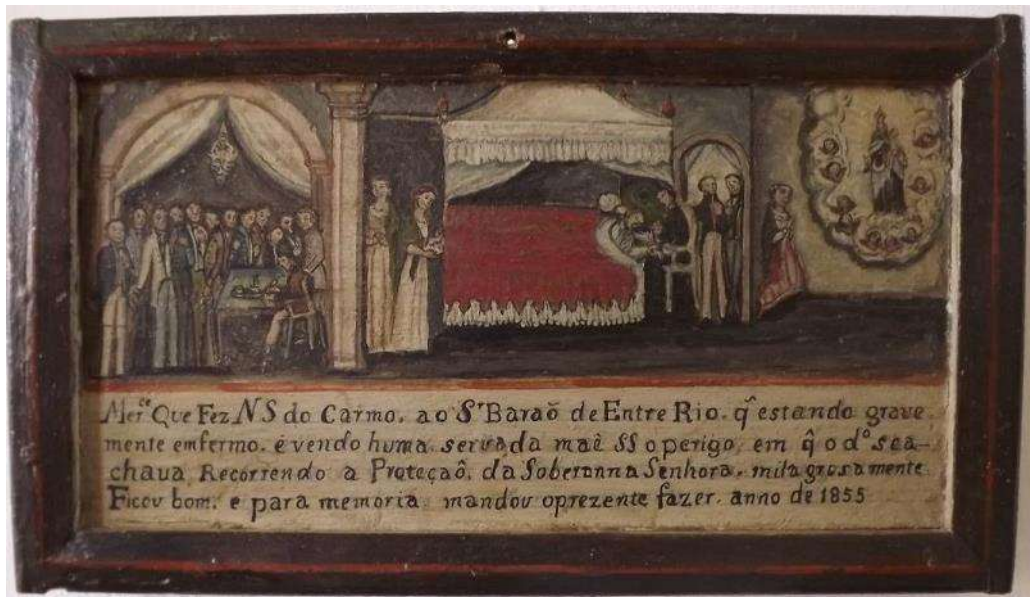 Mer.ce Que Fez NS do Carmo. ao Sr Baraõ de Entre Rio. q̃ estando grave-
mente emfermo. è vendo huma. serva da maê SS o perigo, em q̂ o d.o sea-
chava Recorrendo a Proteçaô. da Soberanna Senhora. milagrosamente
Ficou bom. e para memoria mandou oprezente fazer. anno de 1855